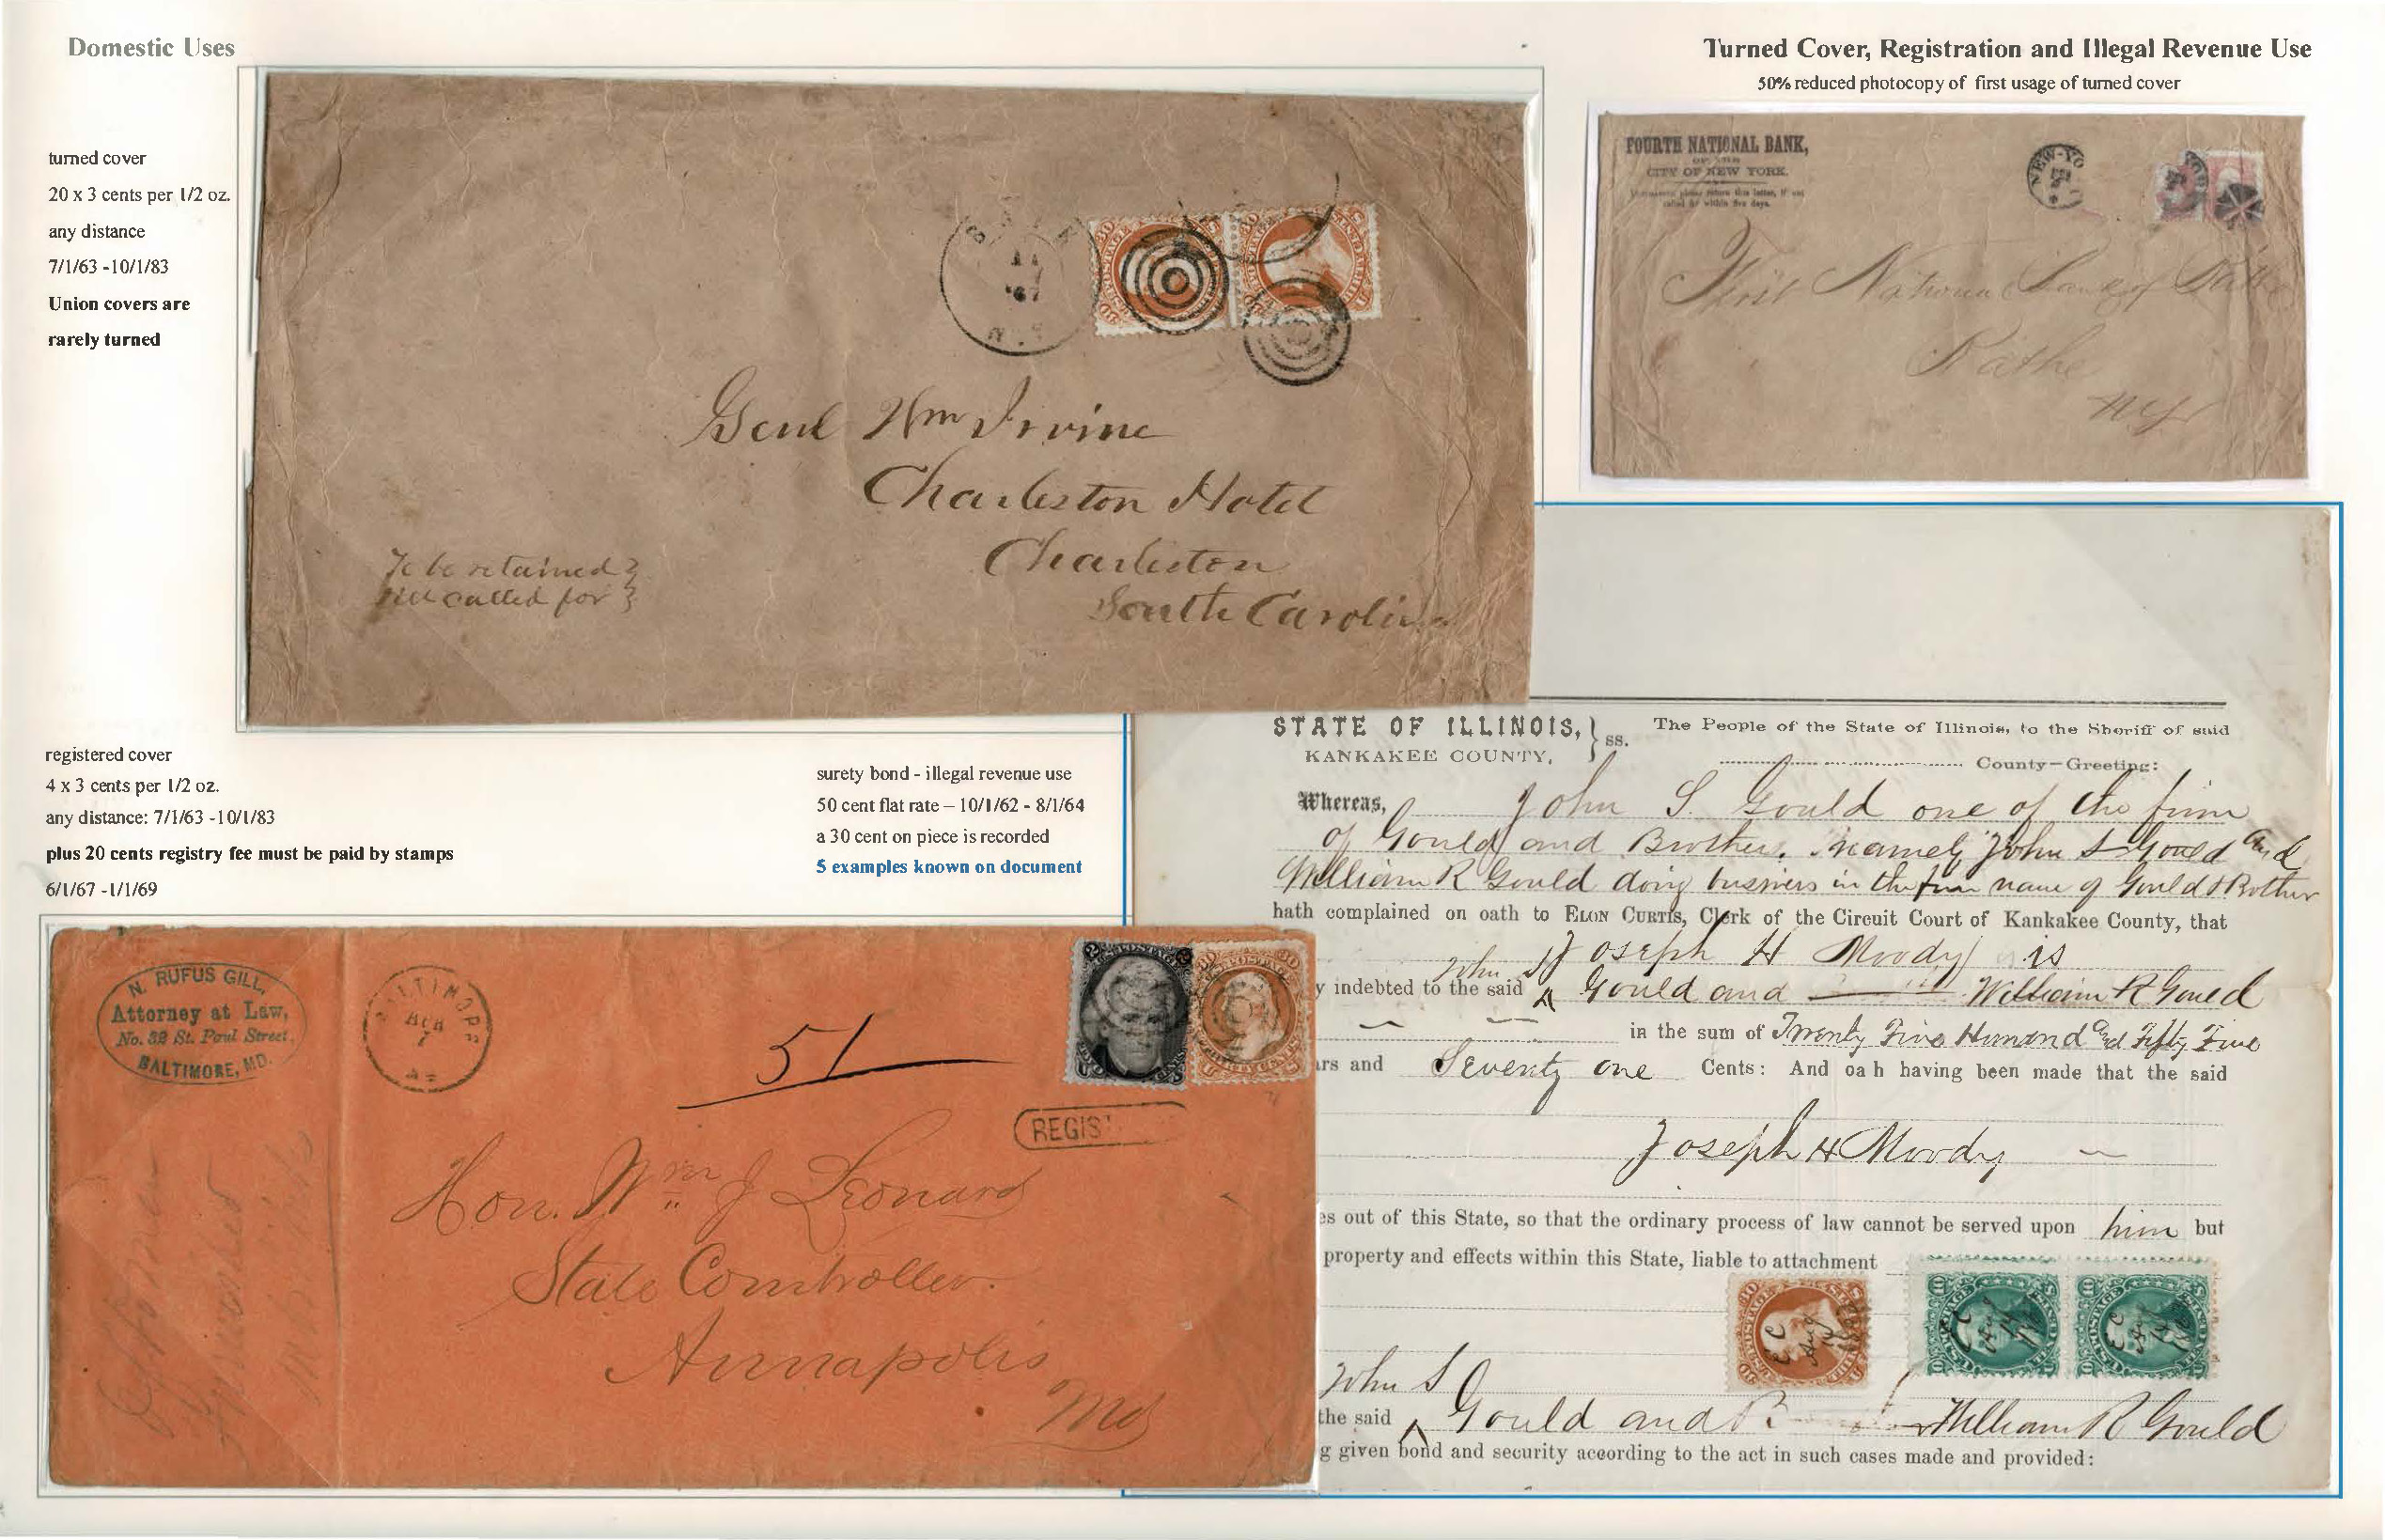 Domestic Uses
Turned Cover, Registration and Illegal Revenue Use
50% reduced photocopy of first usage of turned cover
turned cover
20 x 3 cents per 1/2 oz.
any distance
7/1/63 -10/1/83
Union covers are
rarely turned
FOURTH NATIONAL BANK,
OF THE
CITY OF NEW YORK.
return this letter, if not
called for within five days.
NEW-YO
First National Bank of Bath
Bath
N.Y.
'67
N.Y.
Genl Wm Irvine
Charleston Hotel
Charleston
South Carolina
To be retained
till called for
registered cover
4 x 3 cents per 1/2 oz.
any distance: 7/1/63 -10/1/83
plus 20 cents registry fee must be paid by stamps
6/1/67 -1/1/69
surety bond - illegal revenue use
50 cent flat rate – 10/1/62 - 8/1/64
a 30 cent on piece is recorded
5 examples known on document
STATE OF ILLINOIS, } ss.
KANKAKEE COUNTY,
The People of the State of Illinois, to the Sheriff of said
County—Greeting:
Whereas, John S. Gould one of the firm
of Gould and Brother. namely John S Gould and
William R Gould doing business in the firm name of Gould & Brother
hath complained on oath to ELON CURTIS, Clerk of the Circuit Court of Kankakee County, that
Joseph H Moody is
y indebted to the said John S Gould and William R Gould
in the sum of Twenty Five Hundred and Fifty Five
ars and Seventy one Cents: And oa h having been made that the said
Joseph H Moody
es out of this State, so that the ordinary process of law cannot be served upon him but
property and effects within this State, liable to attachment
E C
Aug
E C
E C
John S
the said Gould and William R Gould
g given bond and security according to the act in such cases made and provided:
N. RUFUS GILL,
Attorney at Law,
No. 32 St. Paul Street.
BALTIMORE, MD.
BALTIMORE
APR
7
51
REGIS
Hon. Wm J Leonard
State Comtroller.
Annapolis
Md